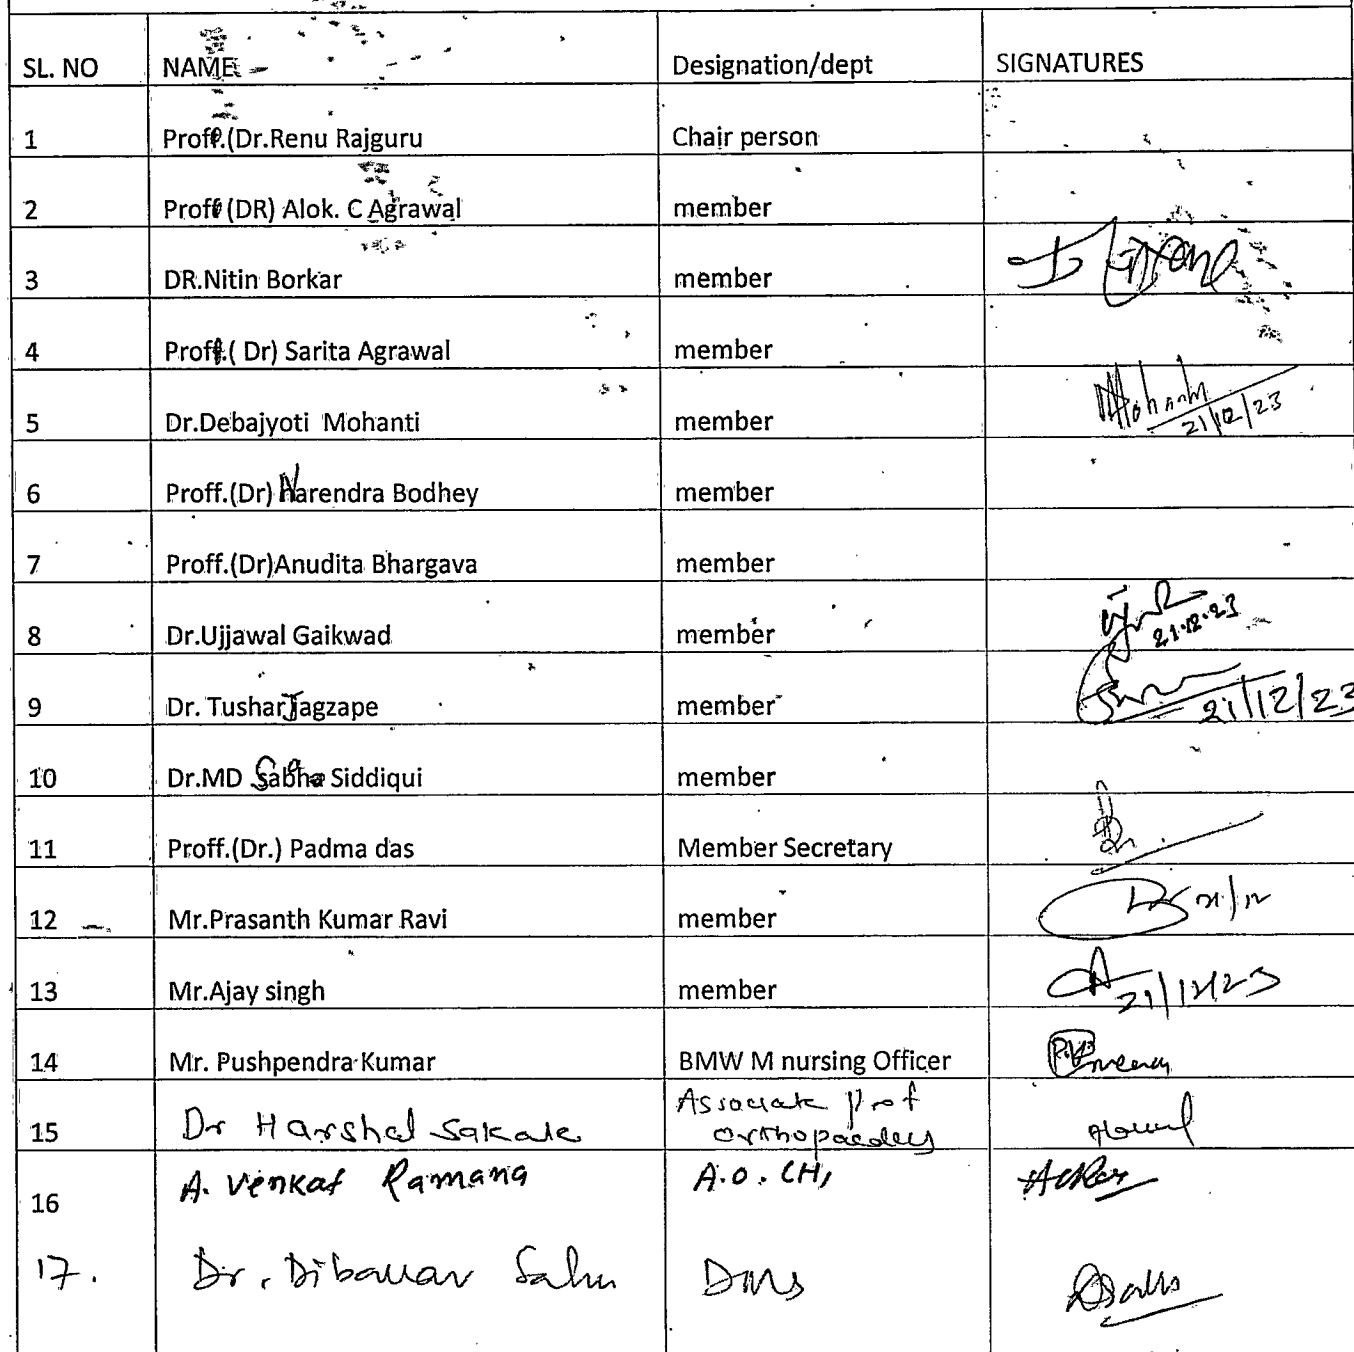 SL. NO NAME Designation/dept SIGNATURES
1 Proff.(Dr.Renu Rajguru Chair person
2 Proff (DR) Alok. C Agrawal member
3 DR.Nitin Borkar member
4 Proff.( Dr) Sarita Agrawal member
5 Dr.Debajyoti Mohanti member Mohanty 21/12/23
6 Proff.(Dr) Narendra Bodhey member
7 Proff.(Dr)Anudita Bhargava member
8 Dr.Ujjawal Gaikwad member 21.12.23
9 Dr. Tushar Jagzape member 21/12/23
10 Dr.MD Siddiqui member
11 Proff.(Dr.) Padma das Member Secretary
12 Mr.Prasanth Kumar Ravi member 21/12
13 Mr.Ajay singh member 21/12/23
14 Mr. Pushpendra Kumar BMW M nursing Officer
15 Dr Harshal Sakale Associate prof
orthopaedics
16 A. Venkat Ramana A.O. CH,
17. Dr. Sahu DMS DSahu